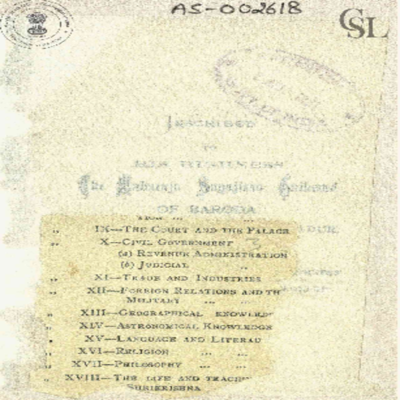 AS-002618
CSL
Inscribed
TO
HIS HIGHNESS
The Maharaja Sayajirao Gaikwad
OF BARODA
„ IX—The Court and the Palace
„ X—Civil Government
(a) Revenue Administration
(b) Judicial „
„ XI—Trade and Industries
„ XII—Foreign Relations and th
Military ... ...
„ XIII—Geographical knowled
„ XIV—Astronomical Knowledge
„ XV—Language and Literau
„ XVI—Religion ... ...
„ XVII—Philosophy ... ...
„ XVIII—The life and teach
Shrikrishna